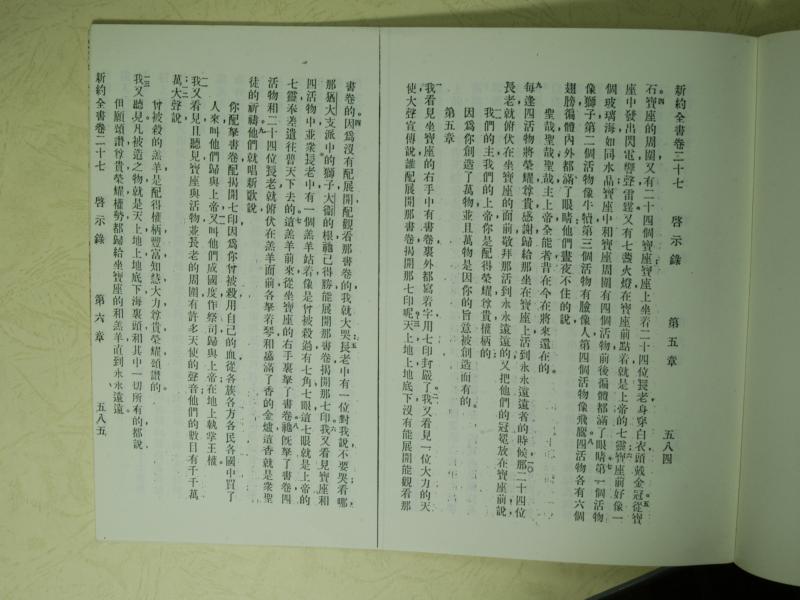 新約全書卷二十七 啓示錄 第五章 五八四
石寶座的周圍又有二十四個寶座寶座上坐着二十四位長老身穿白衣頭戴金冠從寶
座中發出閃電響聲雷霆又有七盞火燈在寶座前點着就是上帝的七靈寶座前好像一
個玻璃海如同水晶寶座中和寶座周圍有四個活物前後徧體都滿了眼睛第一個活物
像獅子第二個活物像牛犢第三個活物有臉像人第四個活物像飛鷹四活物各有六個
翅膀徧體內外都滿了眼睛他們晝夜不住的說
聖哉聖哉聖哉主上帝全能者昔在今在將來還在的
每逢四活物將榮耀尊貴感謝歸給那坐在寶座上活到永永遠遠者的時候那二十四位
長老就俯伏在坐寶座的面前敬拜那活到永永遠遠的又把他們的冠冕放在寶座前說
我們的主我們的上帝你是配得榮耀尊貴權柄的
因爲你創造了萬物並且萬物是因你的旨意被創造而有的
第五章
我看見坐寶座的右手中有書卷裏外都寫着字用七印封嚴了我又看見一位大力的天
使大聲宣傳說誰配展開那書卷揭開那七印呢天上地上地底下沒有能展開能觀看那
書卷的因爲沒有配展開配觀看那書卷的我就大哭長老中有一位對我說不要哭看哪
那猶大支派中的獅子大衞的根他已得勝能展開那書卷揭開那七印我又看見寶座和
四活物中並衆長老中有一個羔羊站着像是曾被殺過有七角七眼這七眼就是上帝的
七靈奉差遣往普天下去的這羔羊前來從坐寶座的右手裏拏了書卷他旣拏了書卷四
活物和二十四位長老就俯伏在羔羊面前各拏着琴和盛滿了香的金爐這香就是衆聖
徒的祈禱他們就唱新歌說
你配拏書卷配揭開七印因爲你曾被殺用自己的血從各族各方各民各國中買了
人來叫他們歸與上帝又叫他們成國度作祭司歸與上帝在地上執掌王權
我又看見且聽見寶座與活物並長老的周圍有許多天使的聲音他們的數目有千千萬
萬大聲說
曾被殺的羔羊是配得權柄豐富知慧大力尊貴榮耀頌讚的
我又聽見凡被造之物就是天上地上地底下海裏頭和其中一切所有的都說
但願頌讚尊貴榮耀權勢都歸給坐寶座的和羔羊直到永永遠遠
新約全書卷二十七 啓示錄 第六章 五八五